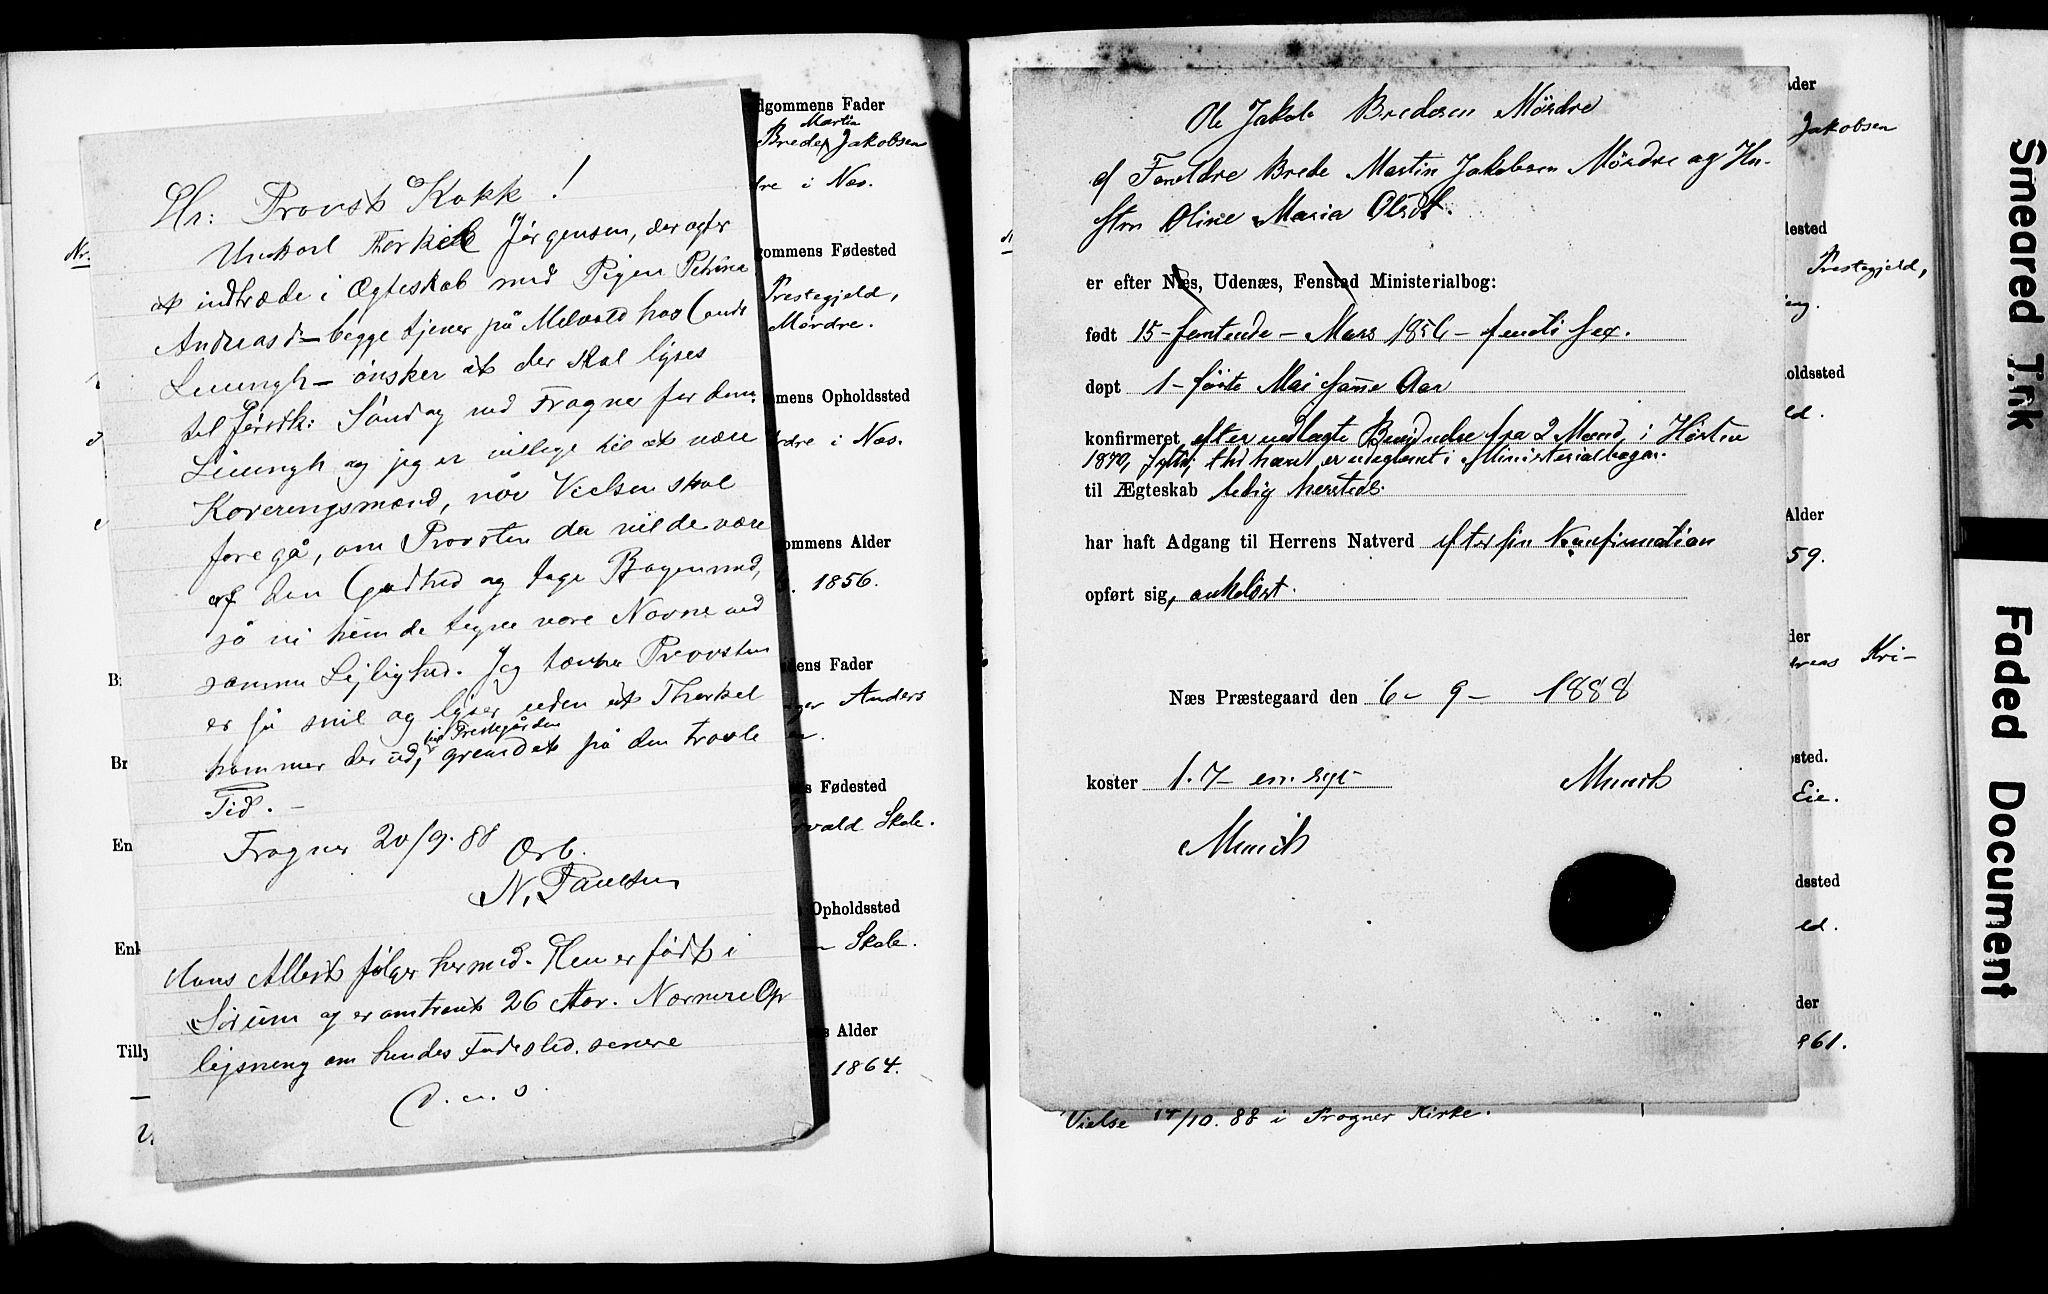 Hr: Provst Kokk!
Unkarl Thorkel Jørgensen, der agter
at indtræde i Ægteskab med Pigen Petrine
Andreasd – begge tjener på Melvold hos Cand:
– ønsker at der skal lyses
til førstk: Søndag ved Frogner for dem.
og jeg er villige til at være
Kaveringsmænd, når Vielsen skal
foregå, om Provsten da vilde være
af den Godhed og tage Bogen med,
så vi kunde tegne vore Navne ved
samme Lejlighed. Jeg tænker Provsten
er så snil og lyser uden at Thorkel
til Prestegården
kommer der ud, grundet på den travle
Tid. –
Frogner 20/9. 88
Ærb.
N. Paulsen
Hans Attest følger hermed. Hun er født i
Sørum og er omtrent 26 Aar. Nærmere Op
lysning om hendes Fødested senere
D. s.
Nr.
dgommens Fader
Martin
Brede Jakobsen
dre i Nes.
gommens Fødested
Prestegjeld,
Mørdre.
mens Opholdssted
rdre i Nes.
ommens Alder
1856.
dens Fader
Anders
s Fødested
vald Skole.
Opholdssted
Skole.
s Alder
1864.
B
Br
En
Enk
Tilly
Ole Jakob Bredesen Mørdre
af Foreldre Brede Martin Jakobsen Mørdre og Hu-
stru Oline Maria Olsdt.
er efter Næs, Udenæs, Fenstad Ministerialbog:
født 15 – femtende – Mars 1856 – femti sex.
døpt 1 – første Mai samme Aar
konfirmeret, efter udlagte Bevidnelse fra 2 Mænd, i Høsten
1870, er udeglemt i Ministerialbogen.
til Ægteskab ledig herstedt.
har haft Adgang til Herrens Natverd efter sin Konfirmation
opført sig, ankeløst.
Næs Præstegaard den 6 – 9 – 1888
koster 1.
Munch
Munch
Vielse 17/10. 88 i Frogner Kirke.
ader
Jakobsen
desested
Prestegjeld,
holdssted
ld.
Alder
59.
der
dreas Kri-
sted.
Eie.
dssted
ld.
der
1861.
Smeared T.rk
Faded Document